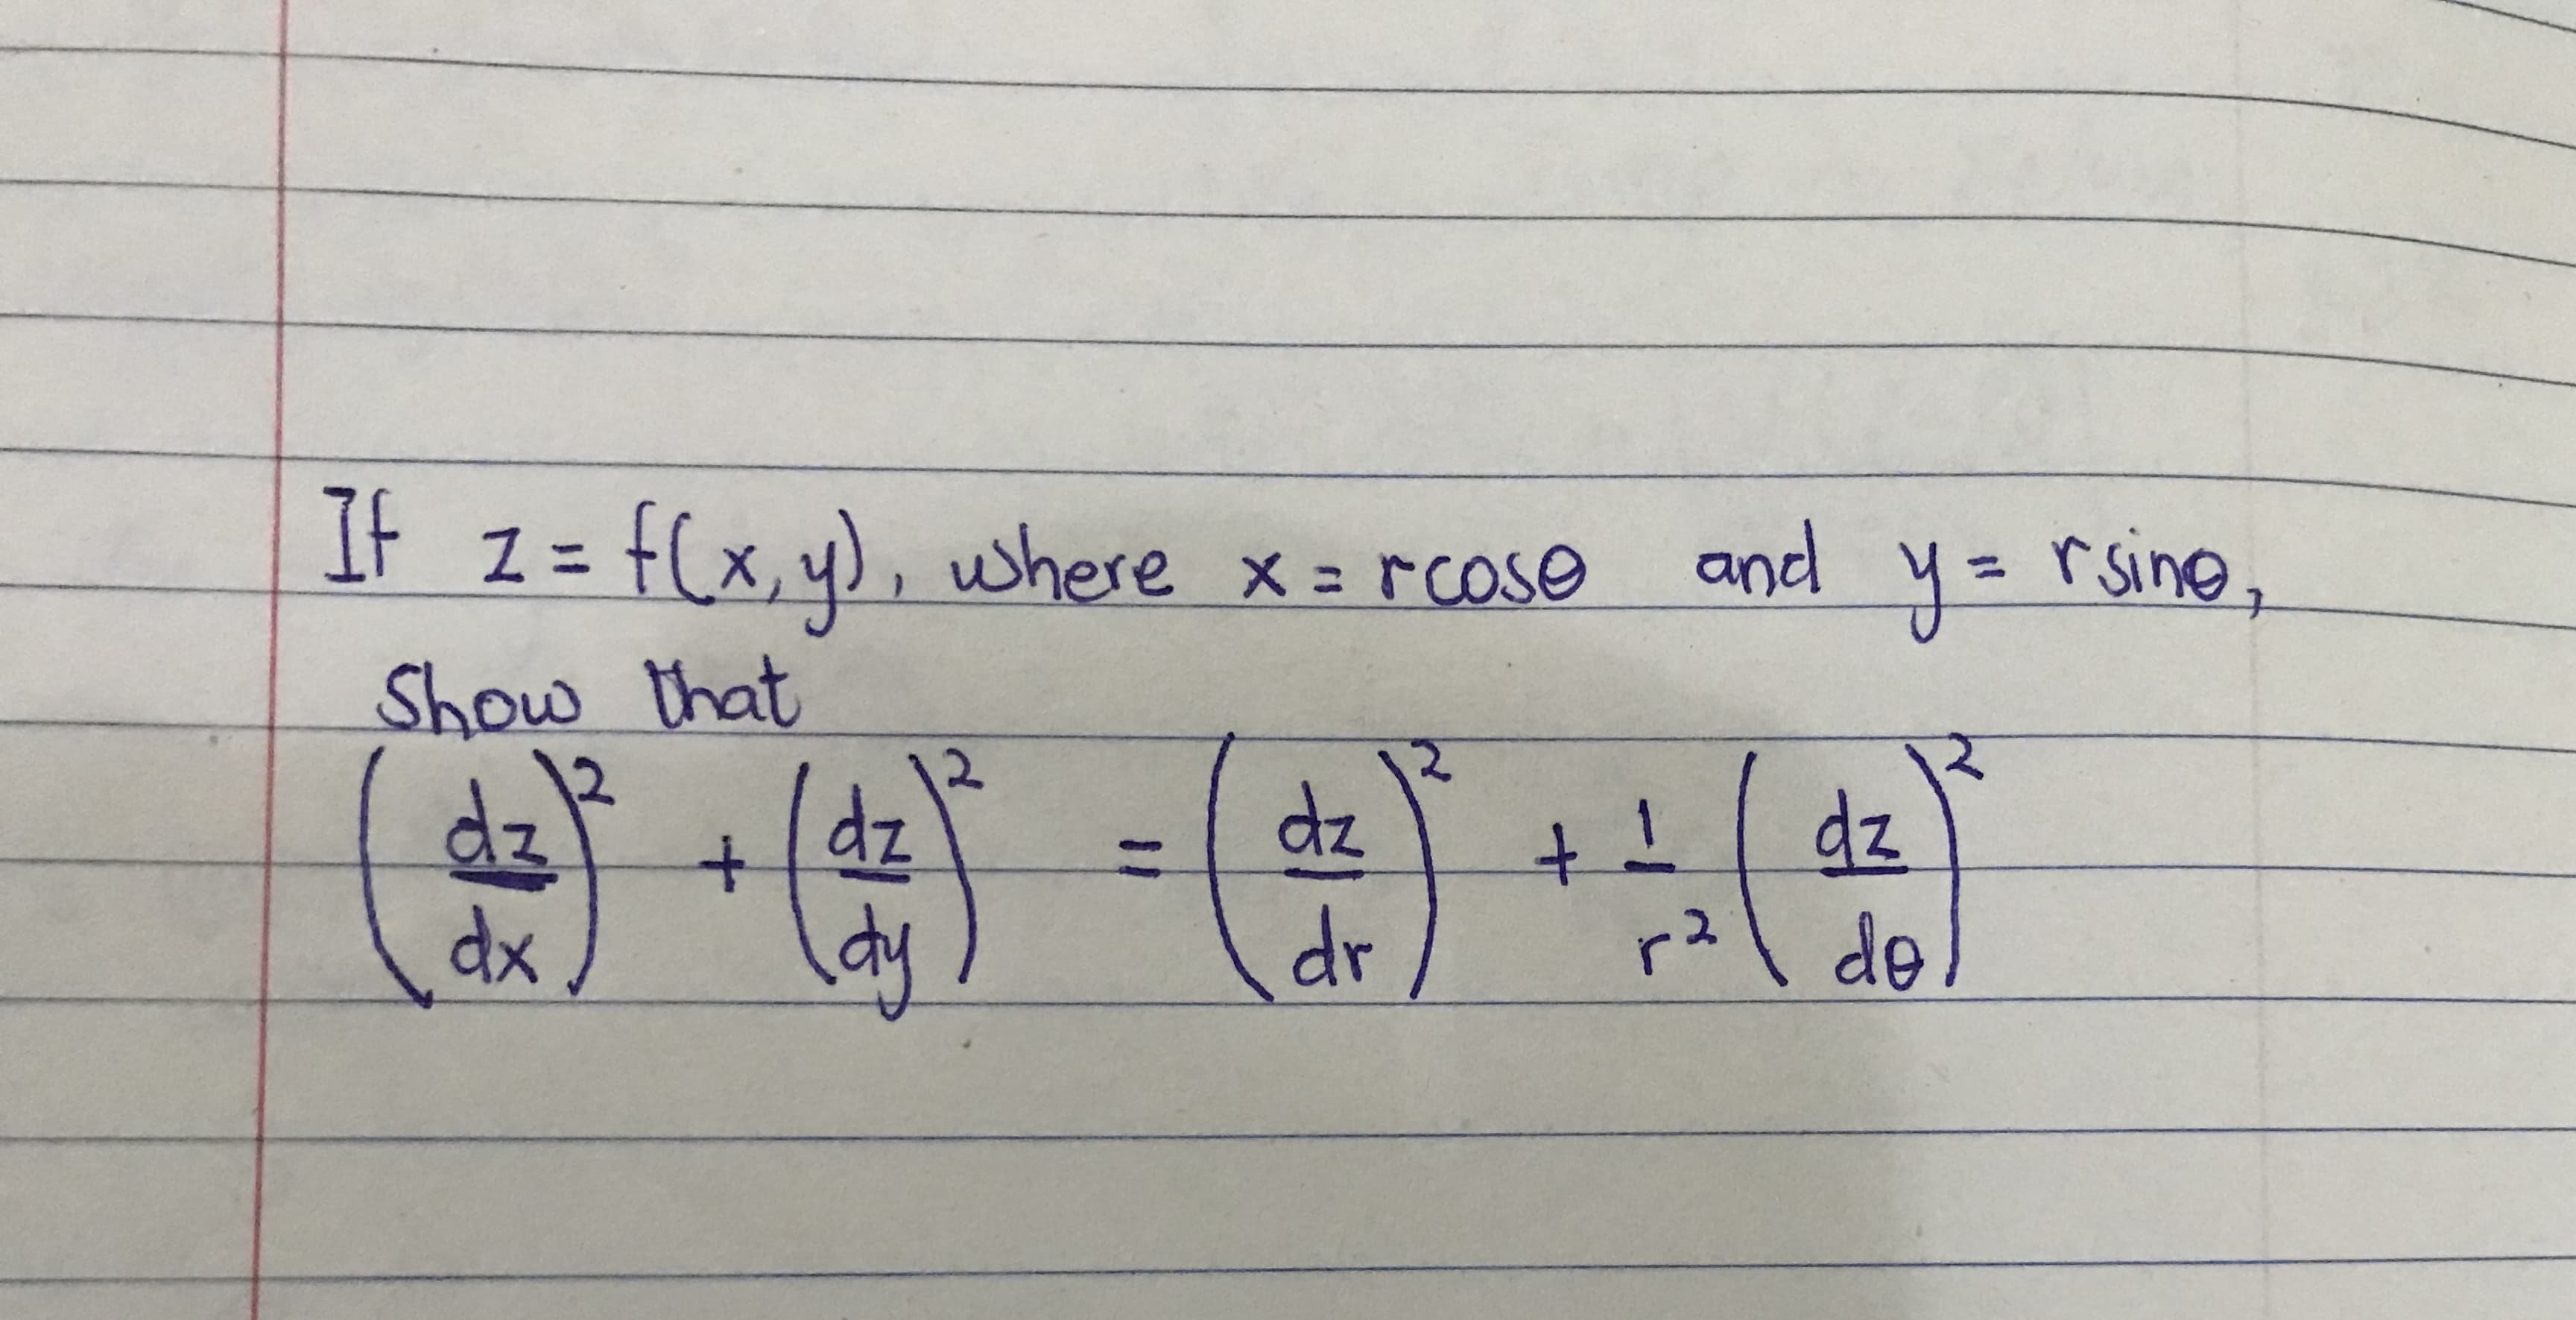 If z = f(x, y), where x = rcosθ and y = rsinθ,
Show that
(dz/dx)² + (dz/dy)² = (dz/dr)² + 1/r² (dz/dθ)²